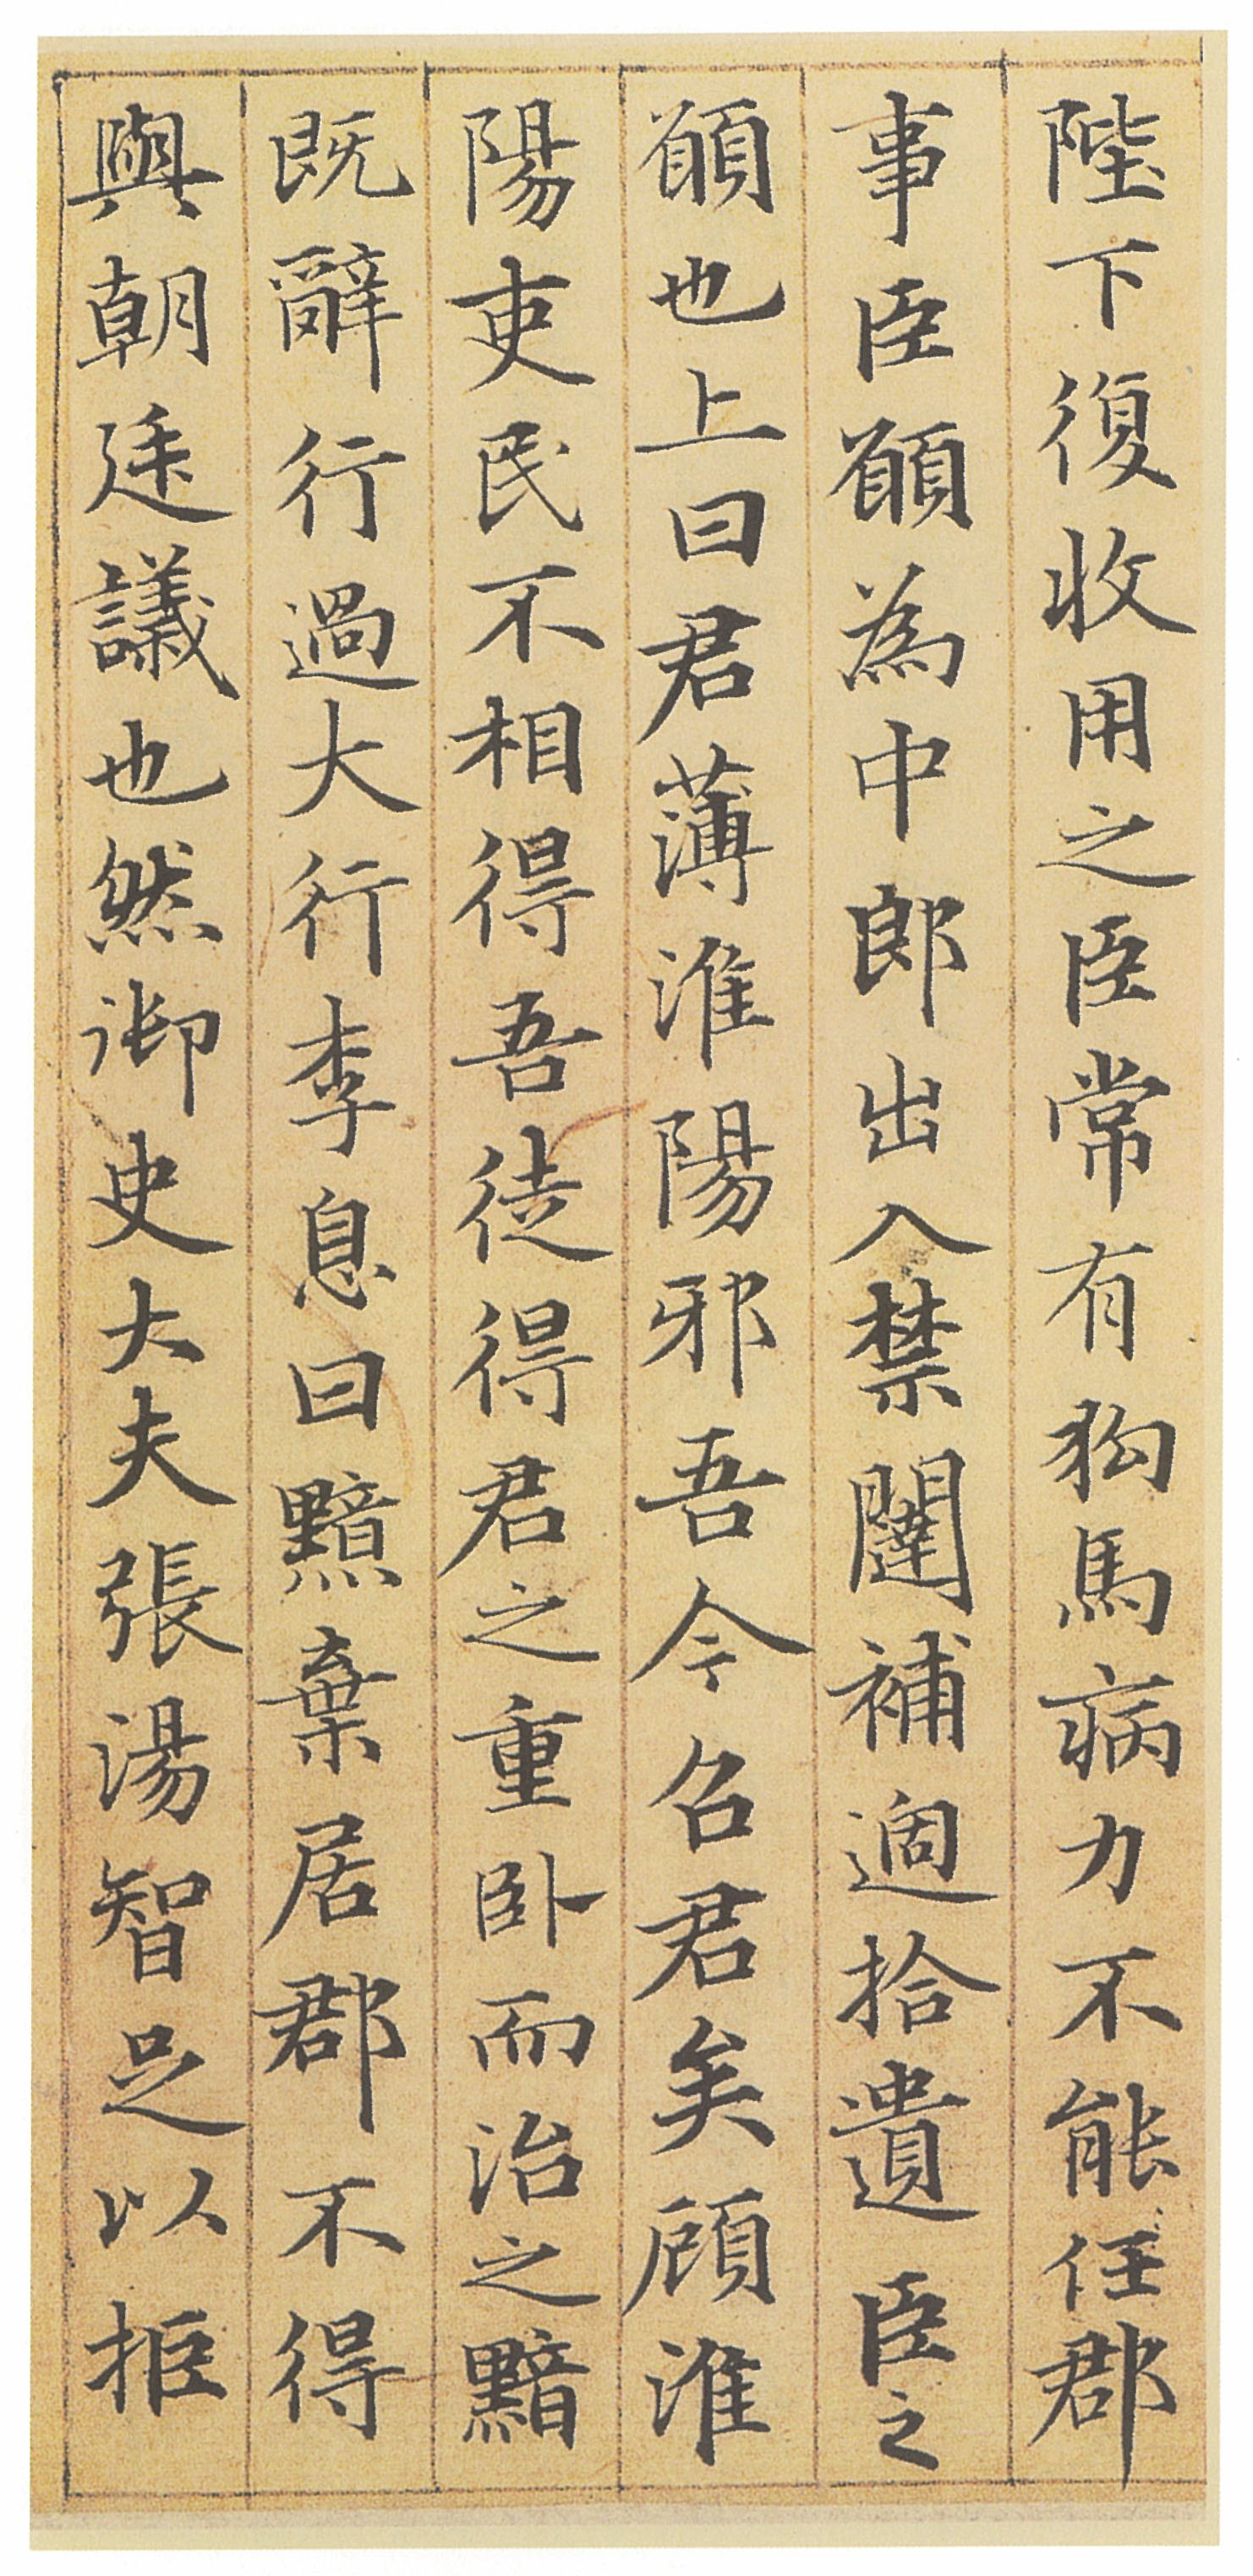 陛下復收用之臣常有狗馬病力不能任郡
事臣頋為中郎出入禁闥補過拾遺臣之
頋也上曰君薄淮陽邪吾今召君矣顧淮
陽吏民不相得吾徒得君之重臥而治之黯
既辭行過大行李息曰黯棄居郡不得
與朝廷議也然御史大夫張湯智足以拒